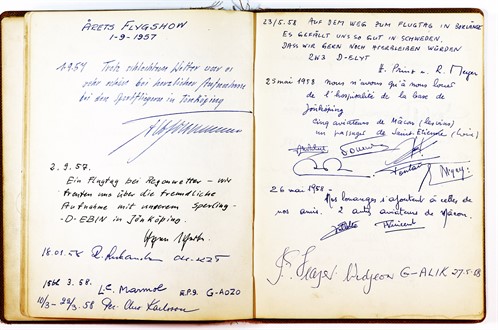 ÅRETS FLYGSHOW
1-9-1957
1957 Trotz schlechtem Wetter war es
sehr schön bei herzlicher Aufnahme
bei den Sportfliegern in Jönköping
2.9.57.
Ein Flugtag bei Regenwetter - wir
freuten uns über die freundliche
Aufnahme mit unserem Sperling
-D-EBIN in Jönköping.
18.01.58
3.58. L.C. Marmol E.P.9. G-AOZO
10/3-29/3.58 Per Owe Karlsson
23/5.58 AUF DEM WEG ZUM FLUGTAG IN BORLÄNGE
ES GEFÄLLT UNS SO GUT IN SCHWEDEN,
DASS WIR GERN NOCH HIERBLEIBEN WÜRDEN
D-ELYT
E. Prinz u. R. Meyer
25 mai 1958 nous n'avons qu'à nous louer
de l'hospitalité de la base de
Jönköping
cinq aviateurs de Mâcon
un passager de Saint-Etienne (Loire)
26 mai 1958 - Nos louanges s'ajoutent à celles de
nos amis. 2 autres aviateurs de Mâcon.
Vincent
G-ALIK 27.5.58